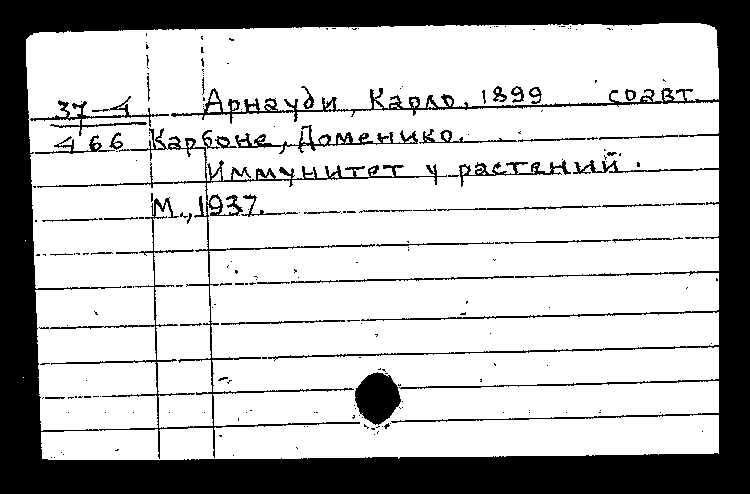 37-4 Арнауди, Карло, 1899 соавт.
466 Карбоне, Доменико.
Иммунитет у растений.
М., 1937.